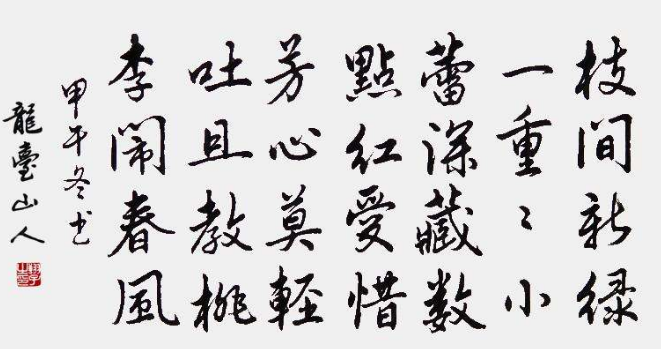 枝间新绿
一重〻小
蕾深藏数
點紅愛惜
芳心莫輕
吐且教桃
李闹春風
甲午冬书
龍臺山人